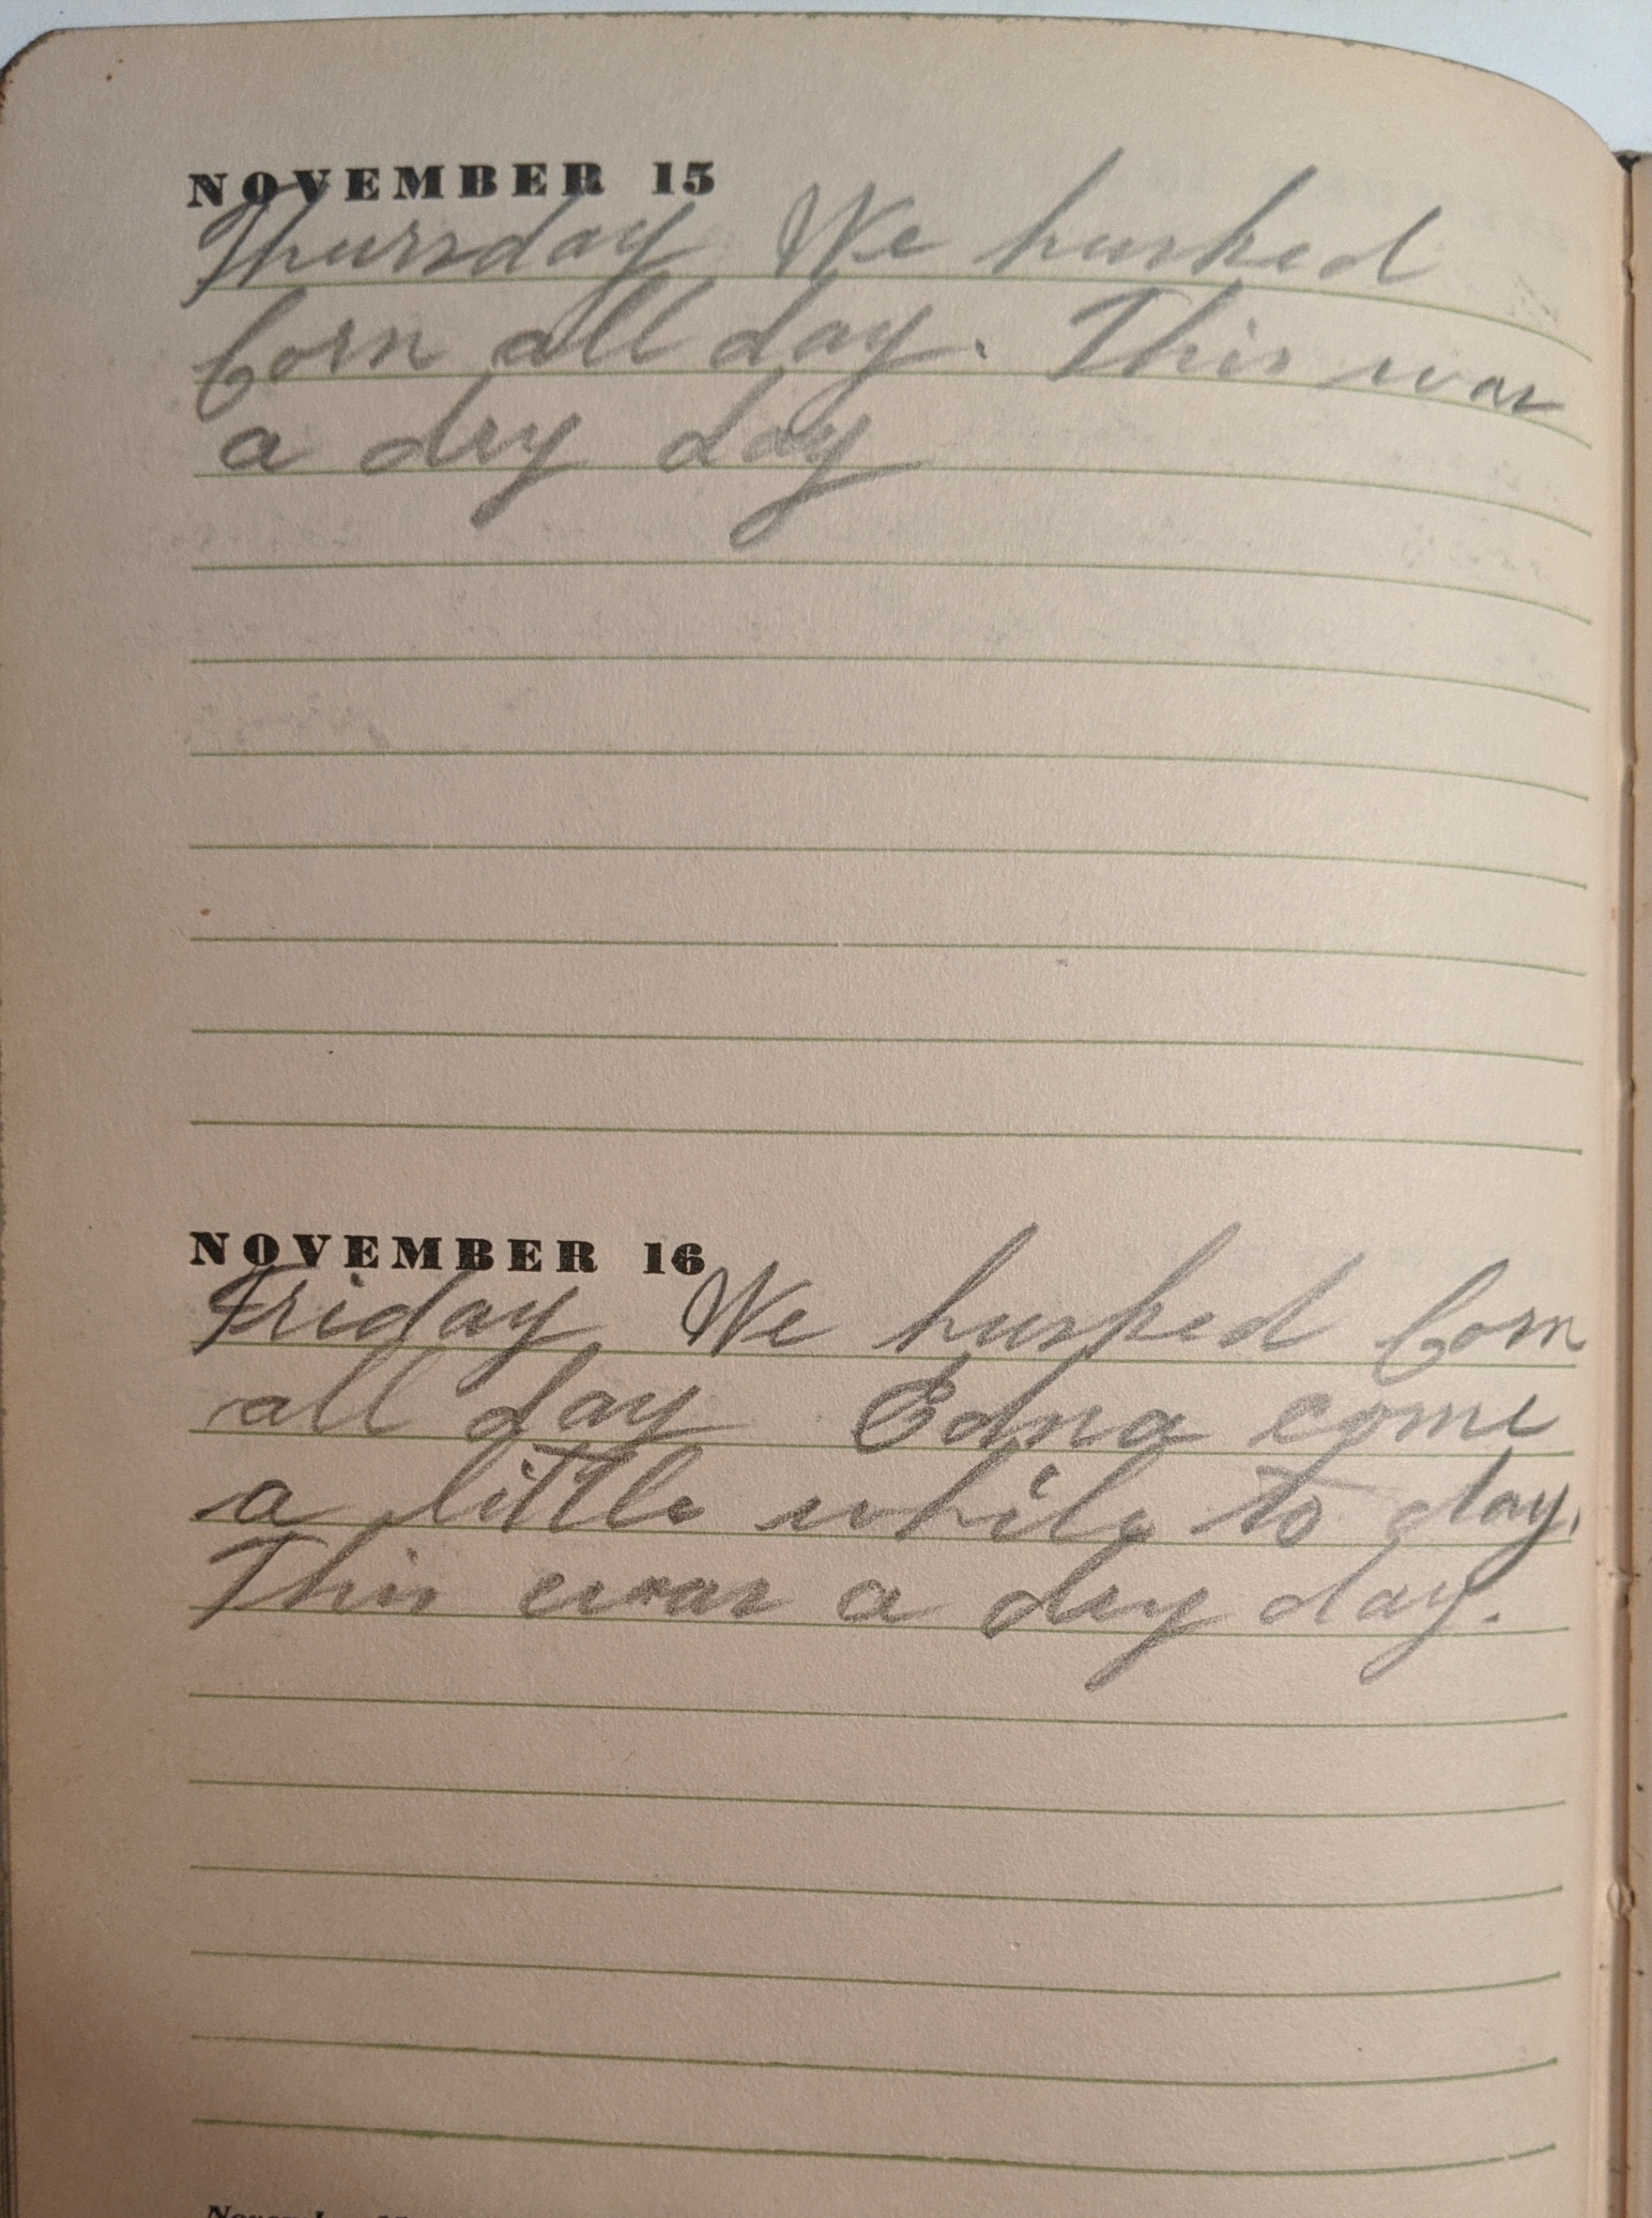 NOVEMBER 15
Thursday We husked
Corn all day. This was
a dry day
NOVEMBER 16
Friday We husked Corn
all day Edna come
a little while to day.
This was a dry day.